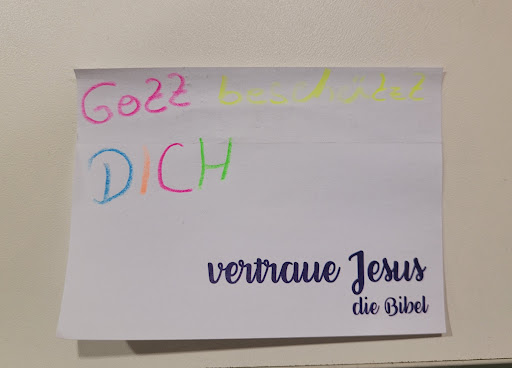 Gozz beschützt
DICH
vertraue Jesus
die Bibel